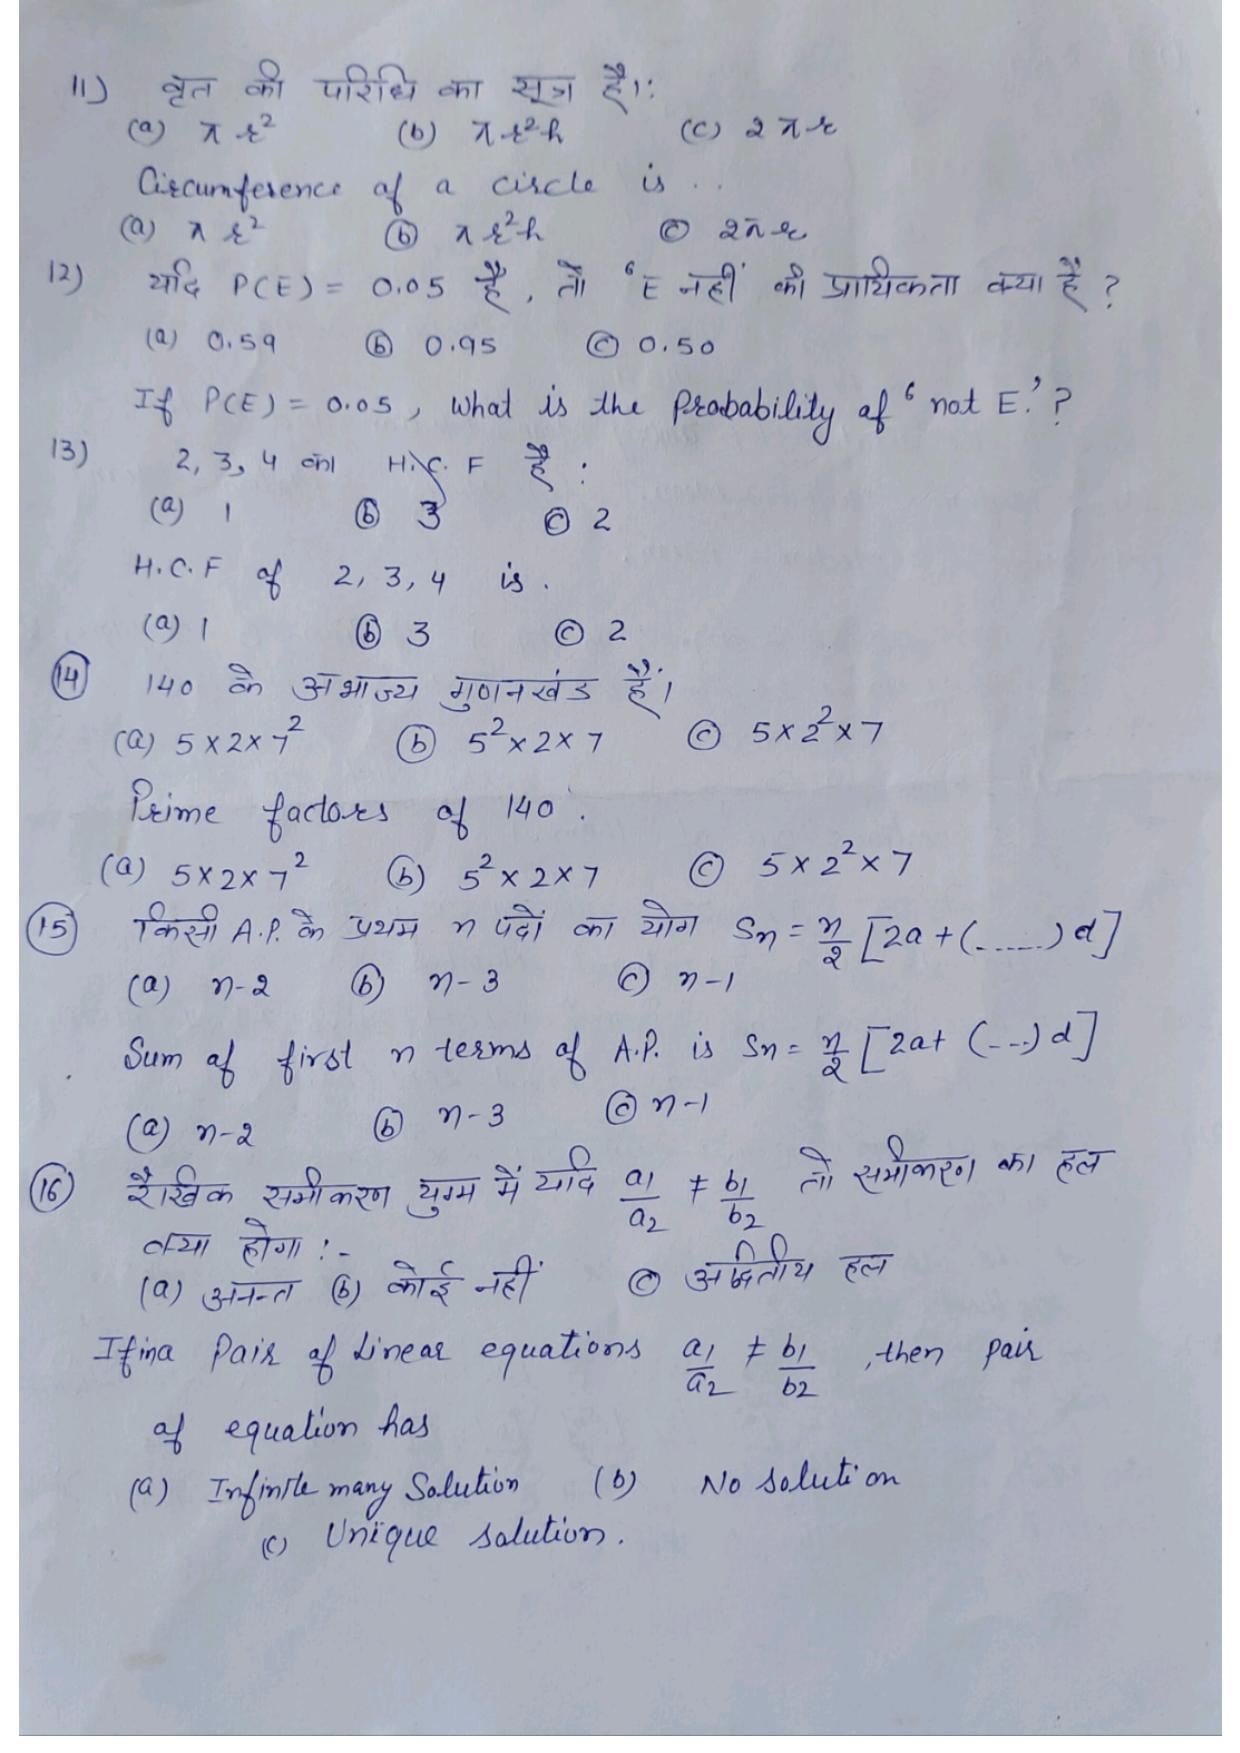 11) वृत की परिधि का सूत्र है।:
(a) πr² (b) πr²h (c) 2πr
Circumference of a circle is ..
(a) πr² (b) πr²h (c) 2πr
12) यदि P(E) = 0.05 है, तो 'E नहीं' की प्रायिकता क्या है ?
(a) 0.59 (b) 0.95 (c) 0.50
If P(E) = 0.05, what is the Probability of 'not E.'?
13) 2, 3, 4 का H.C.F है :
(a) 1 (b) 3 (c) 2
H.C.F of 2, 3, 4 is.
(a) 1 (b) 3 (c) 2
(14) 140 के अभाज्य गुणनखंड हैं।
(a) 5×2×7² (b) 5²×2×7 (c) 5×2²×7
Prime factors of 140.
(a) 5×2×7² (b) 5²×2×7 (c) 5×2²×7
(15) किसी A.P. के प्रथम n पदों का योग Sn = n/2 [2a+(......)d]
(a) n-2 (b) n-3 (c) n-1
Sum of first n terms of A.P. is Sn = n/2 [2a+ (---)d]
(a) n-2 (b) n-3 (c) n-1
(16) रैखिक समीकरण युग्म में यदि a1/a2 ≠ b1/b2 तो समीकरण का हल
क्या होगा :-
(a) अनन्त (b) कोई नहीं (c) अद्वितीय हल
If in a Pair of Linear equations a1/a2 ≠ b1/b2 ,then pair
of equation has
(a) Infinite many Solution (b) No solution
(c) Unique solution.